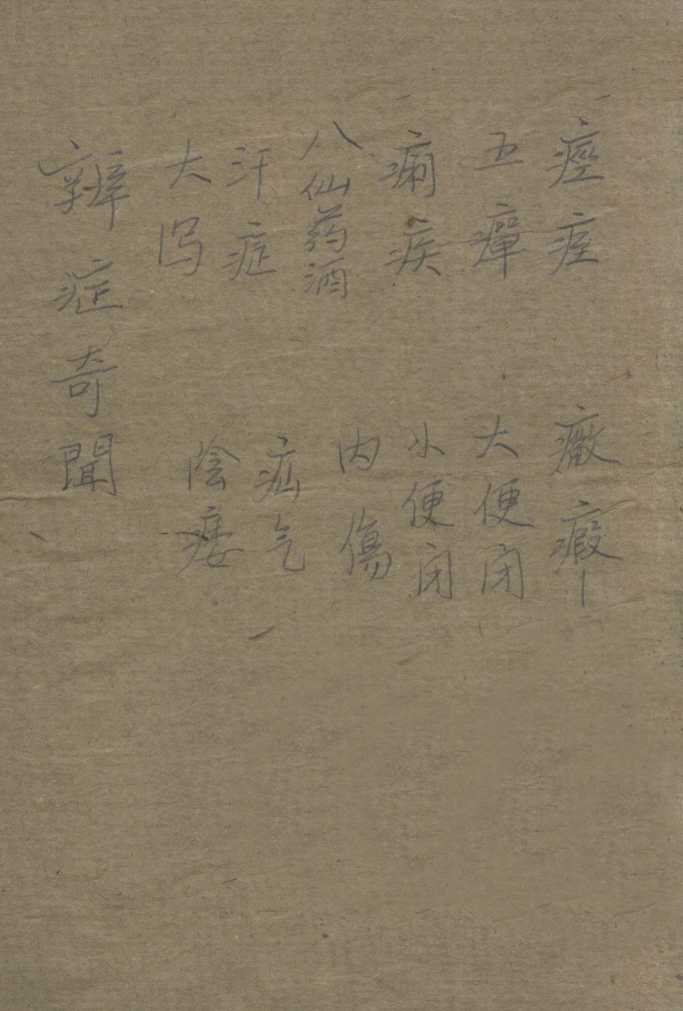 痙痓
五瘴
痢疾
八仙药酒
汗症
大泻
癥瘕
大便闭
小便闭
内傷
疝气
陰痿
辨症奇聞